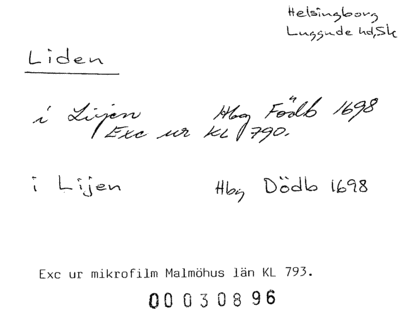 Helsingborg
Luggude hd, Sk
Liden
i Lijen Hbg Födb 1698
Exc ur KL 790.
i Lijen Hbg Dödb 1698
Exc ur mikrofilm Malmöhus län KL 793.
00030896